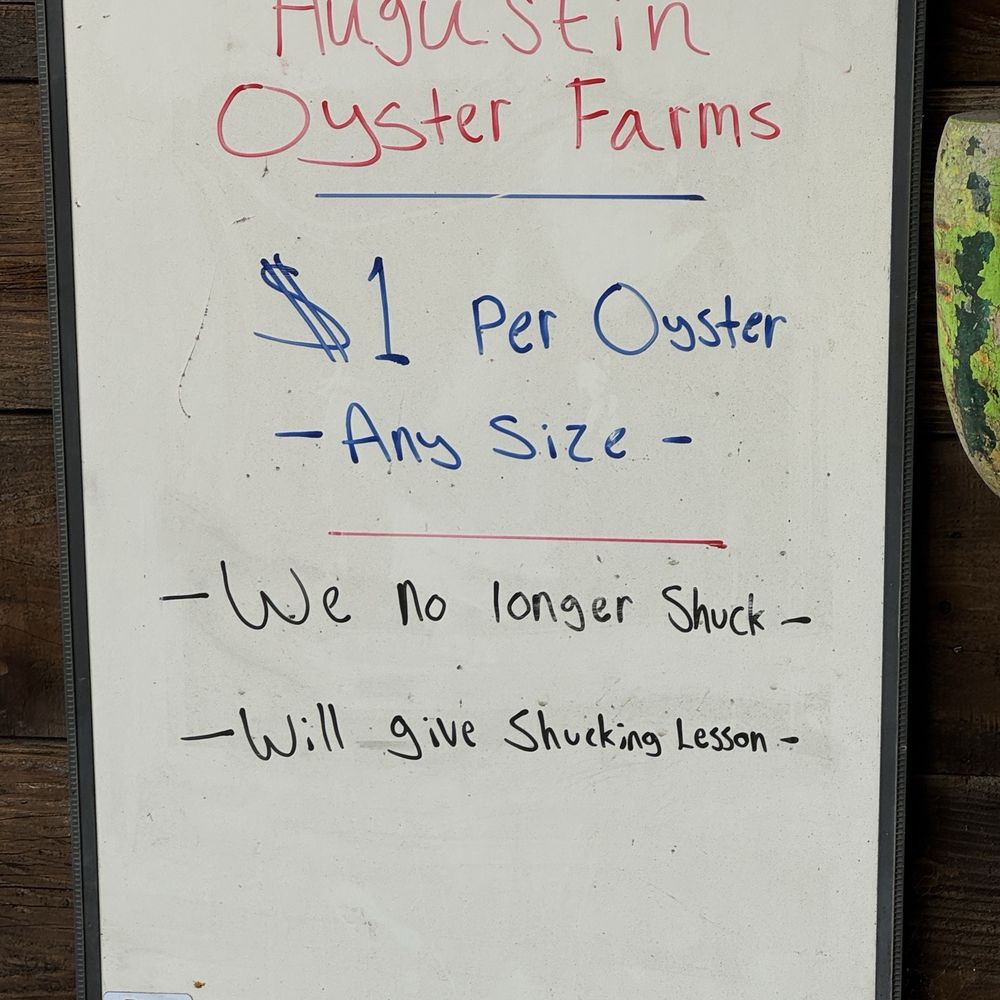 Augustin
Oyster Farms
$1 Per Oyster
- Any Size -
- We no longer Shuck -
- Will give Shucking Lesson -